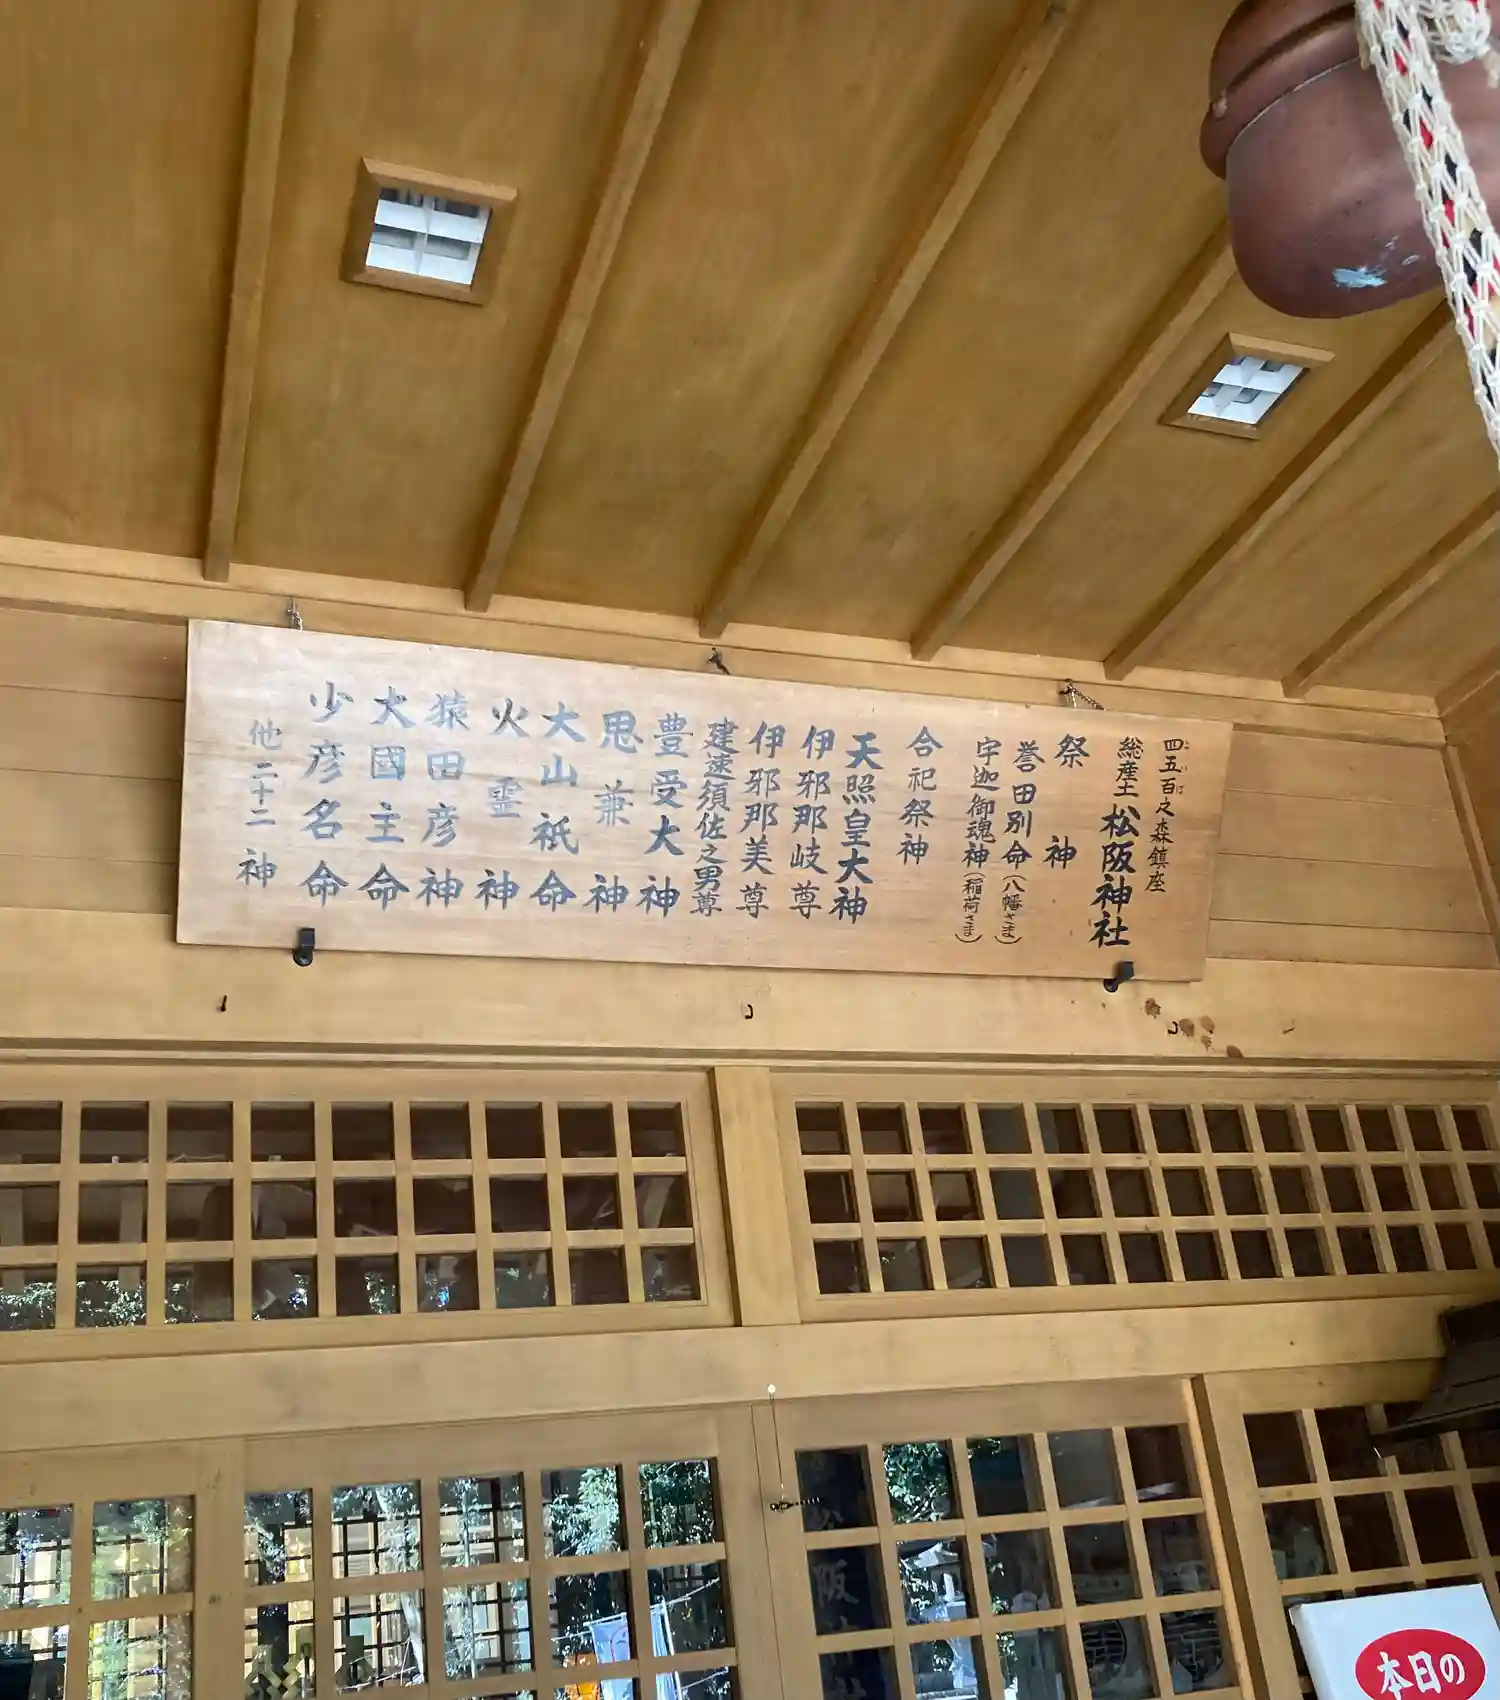 四五百之森鎮座
よいほ
総産土 松阪神社
祭神
誉田別命（八幡さま）
宇迦御魂神（稲荷さま）
合祀祭神
天照皇大神
伊邪那岐尊
伊邪那美尊
建速須佐之男尊
豊受大神
思兼神
大山祇命
火霊神
猿田彦神
大國主命
少彦名命
他二十二神
本日の